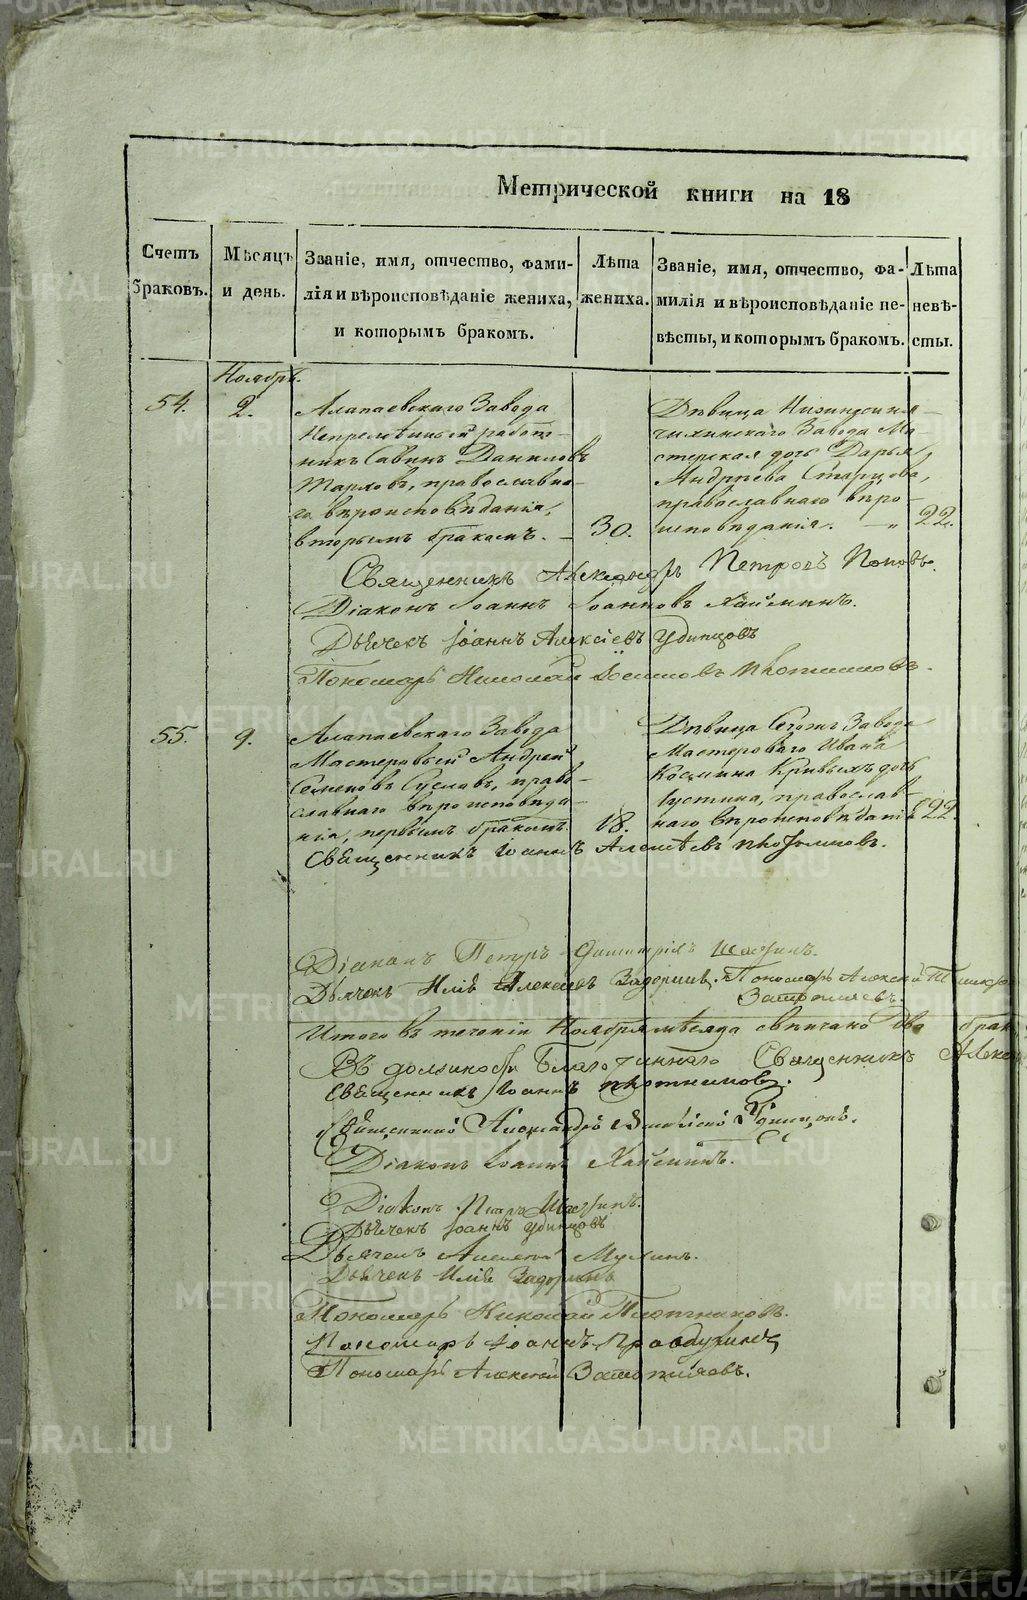 Метрической книги на 18
Счетъ браковъ.
Мѣсяцъ и день.
Званіе, имя, отчество, фами-
лія и вѣроисповѣданіе жениха,
и которымъ бракомъ.
Лѣта
жениха.
Званіе, имя, отчество, фа-
милія и вѣроисповѣданіе не-
вѣсты, и которымъ бракомъ.
Лѣта
невѣ-
сты.
Ноябрь.
54.
2.
Алапаевскаго Завода
Непремѣнный работ-
никъ Савинъ Даниловъ
православна-
го вѣроисповѣданія,
вторымъ бракомъ.
30.
Дѣвица
Завода Ма-
стерская дочь Дарья
Андреева Старцова,
православнаго вѣро-
исповѣданія.
22.
Священникъ Александръ Петровъ Поповъ.
Діаконъ Іоаннъ Іоанновъ Хайминъ.
Дьячекъ Іоаннъ Алексіевъ Удинцовъ
Пономарь Николай Плотниковъ.
55.
9.
Алапаевскаго Завода
Мастеровый Андрей
Семеновъ Сусловъ, право-
славнаго вѣроисповѣда-
нія, первымъ бракомъ.
18.
Дѣвица Сегожъ Завода
Мастероваго Ивана
Космина Кривыхъ дочь
Іустина, православ-
наго вѣроисповѣданія
22.
Священникъ Іоаннъ Алексѣевъ Плотниковъ.
Діаконъ Петръ Димитріевъ
Дьячекъ Илія Алексѣевъ Задоринъ. Пономарь Алексѣй
Итого въ теченіи Ноября мѣсяца вѣнчано два брак
Въ должности Благочиннаго Священникъ Алекс
Священникъ Іоаннъ Плотниковъ.
Удинцовъ.
Діаконъ Іоаннъ Хайминъ.
Діаконъ Петръ
Дьячекъ Іоаннъ Удинцовъ
Дьячекъ Алексѣй
Дьячекъ Илія Задоринъ
Пономарь Николай Плотниковъ.
Пономарь Іоаннъ
Пономарь Алексѣй
METRIKI.GASO-URAL.RU